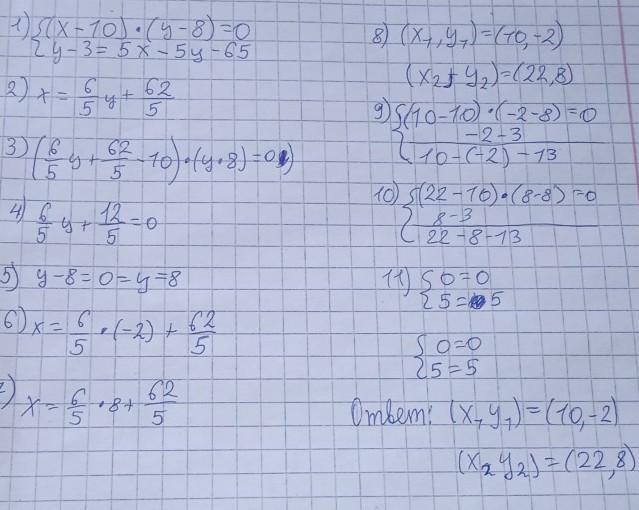 1) {(x-10)·(y-8)=0
{y-3=5x-5y-65
2) x=6/5 y+62/5
3) (6/5 y+62/5-10)·(y·8)=0)
4) 6/5 y+12/5=0
5) y-8=0=y=8
6) x=6/5·(-2)+62/5
7) x=6/5·8+62/5
8) (x1,y1)=(10,-2)
(x2,y2)=(22,8)
9) {(10-10)·(-2-8)=0
{-2-3/10-(-2)-13
10) {(22-10)·(8-8)=0
{8-3/22-8-13
11) {0=0
{5=5
{0=0
{5=5
Ответ: (x1 y1)=(10,-2)
(x2 y2)=(22,8)